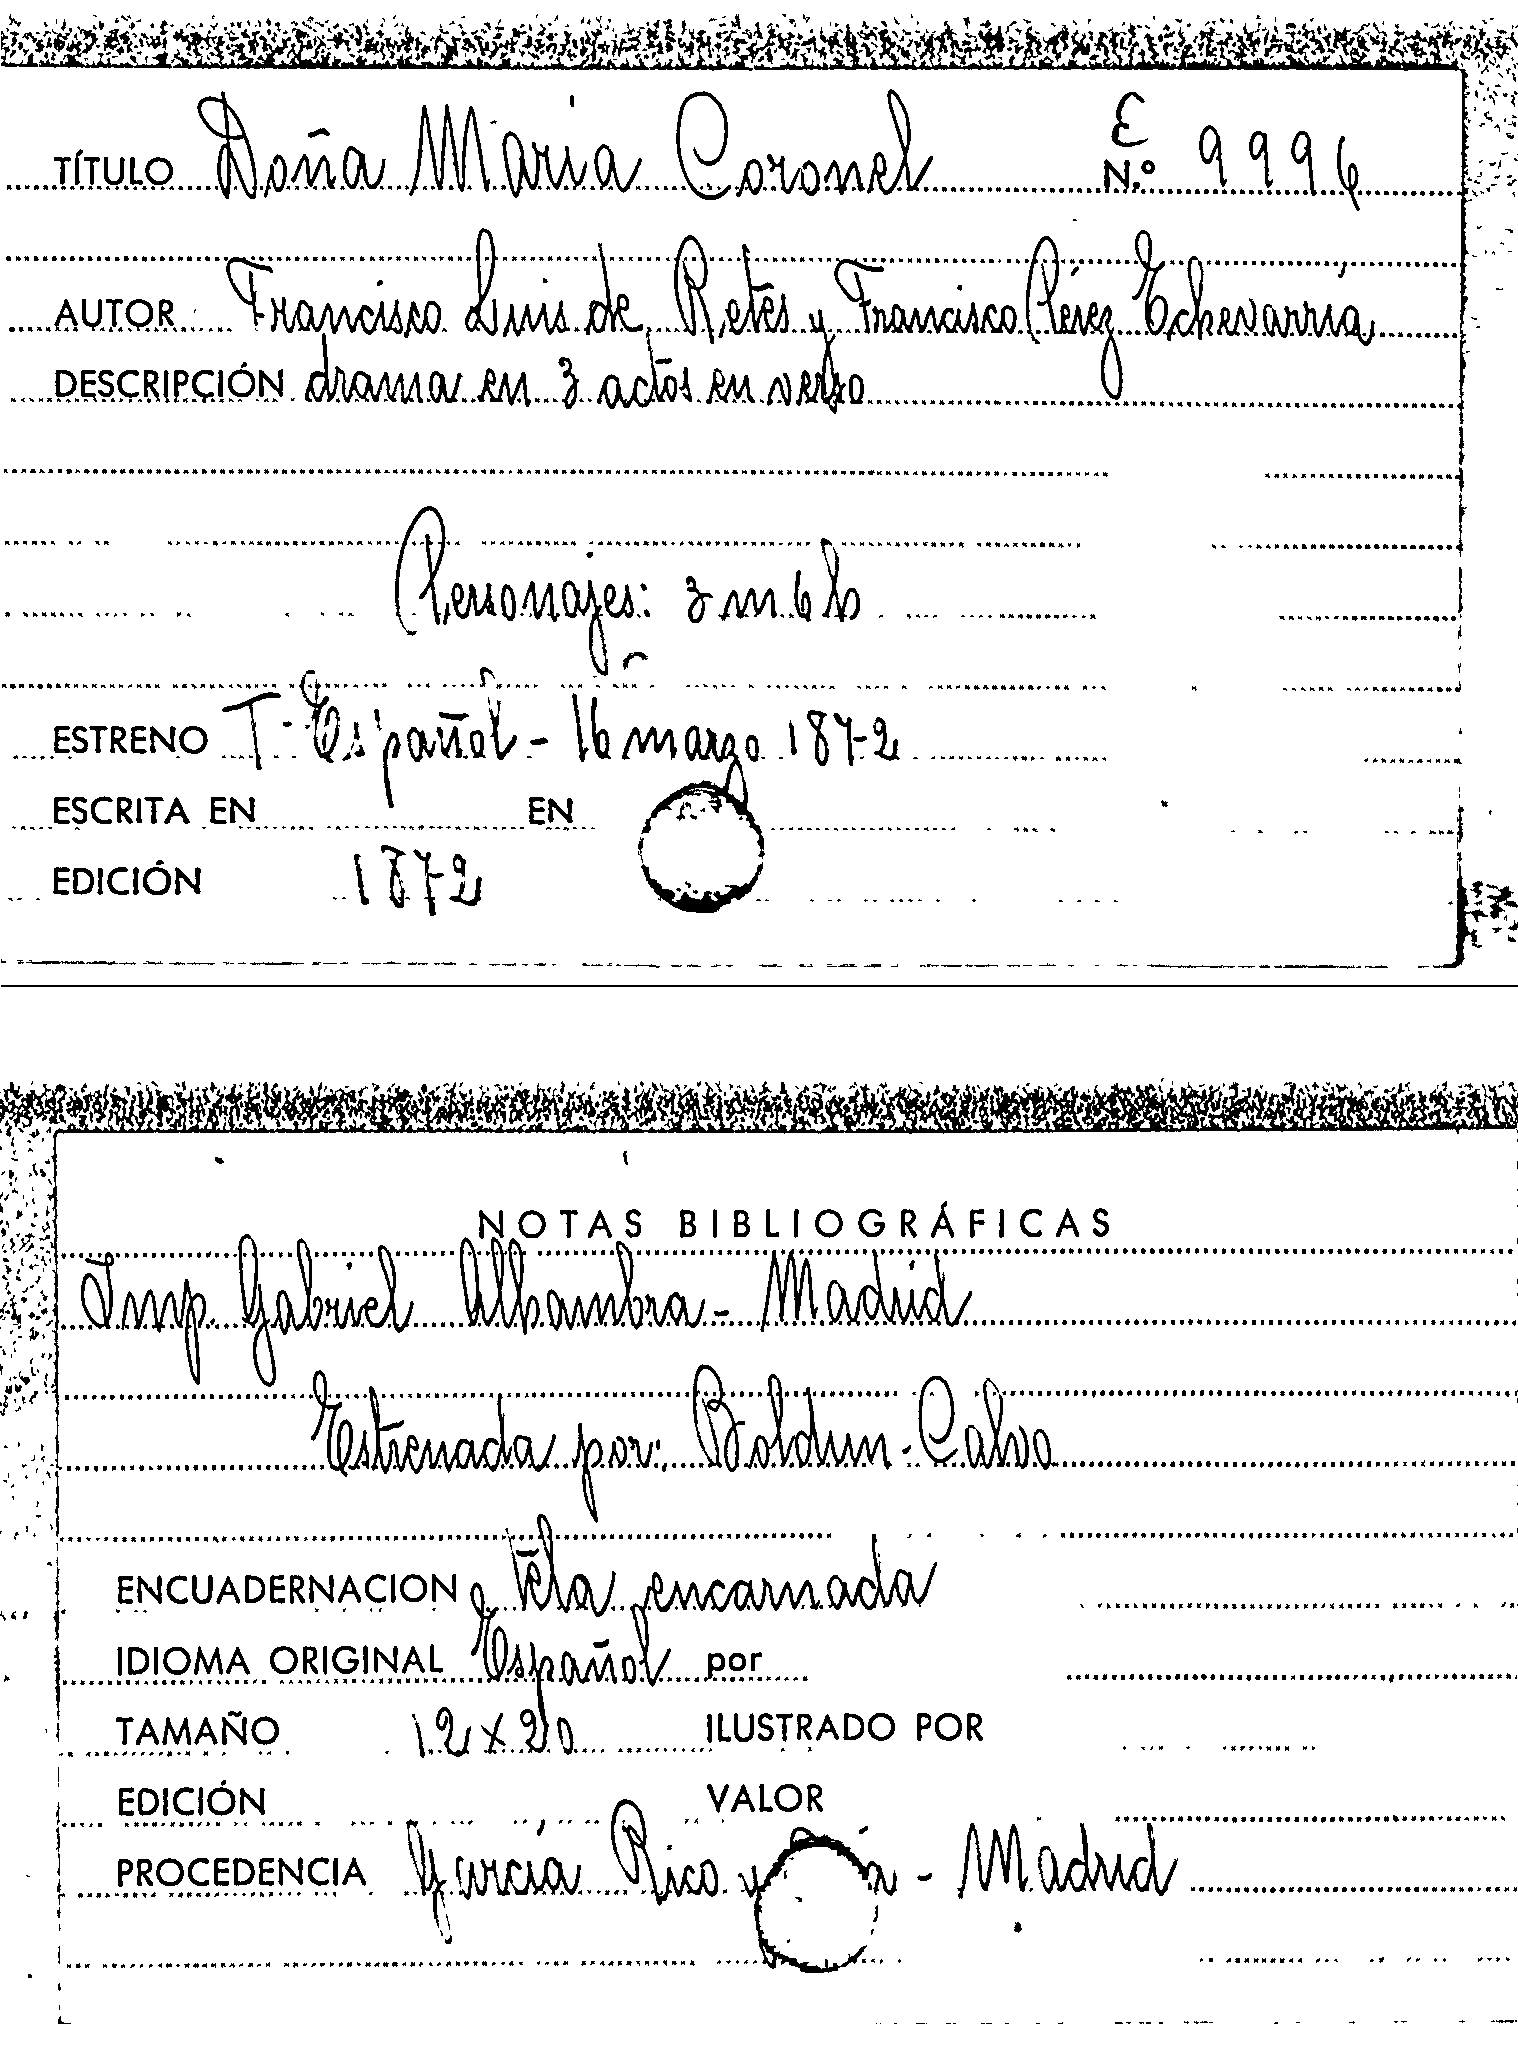 TÍTULO Doña María Coronel E N.º 9996
AUTOR Francisco Luis de Retes y Francisco Pérez Echevarría
DESCRIPCIÓN drama en 3 actos en verso
Personajes: 3 m 6 h
ESTRENO T. Español - 16 marzo 1872
ESCRITA EN EN
EDICIÓN 1872
NOTAS BIBLIOGRÁFICAS
Imp. Gabriel Alhambra - Madrid
Estrenada por: Boldun - Calvo
ENCUADERNACION tela encarnada
IDIOMA ORIGINAL Español por
TAMAÑO 12 x 20 ILUSTRADO POR
EDICIÓN VALOR
PROCEDENCIA García Rico y - Madrid